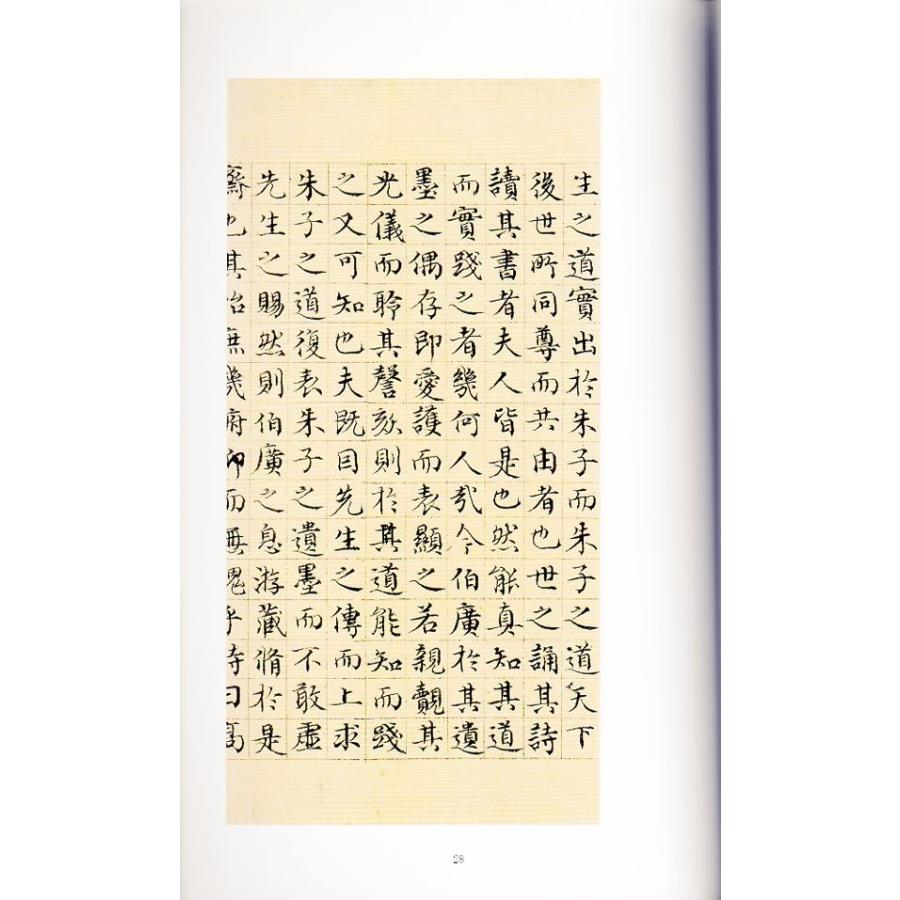 生之道實出於朱子而朱子之道天下
後世所同尊而共由者也世之誦其詩
讀其書者夫人皆是也然能真知其道
而實踐之者幾何人哉今伯廣於其遺
墨之偶存即愛護而表顯之若親覿其
光儀而聆其謦欬則於其道能知而踐
之又可知也夫既因先生之傳而上求
朱子之道復表朱子之遺墨而不敢虛
先生之賜然則伯廣之息游藏脩於是
齋也其殆庶幾俯仰而無愧乎詩曰高
28